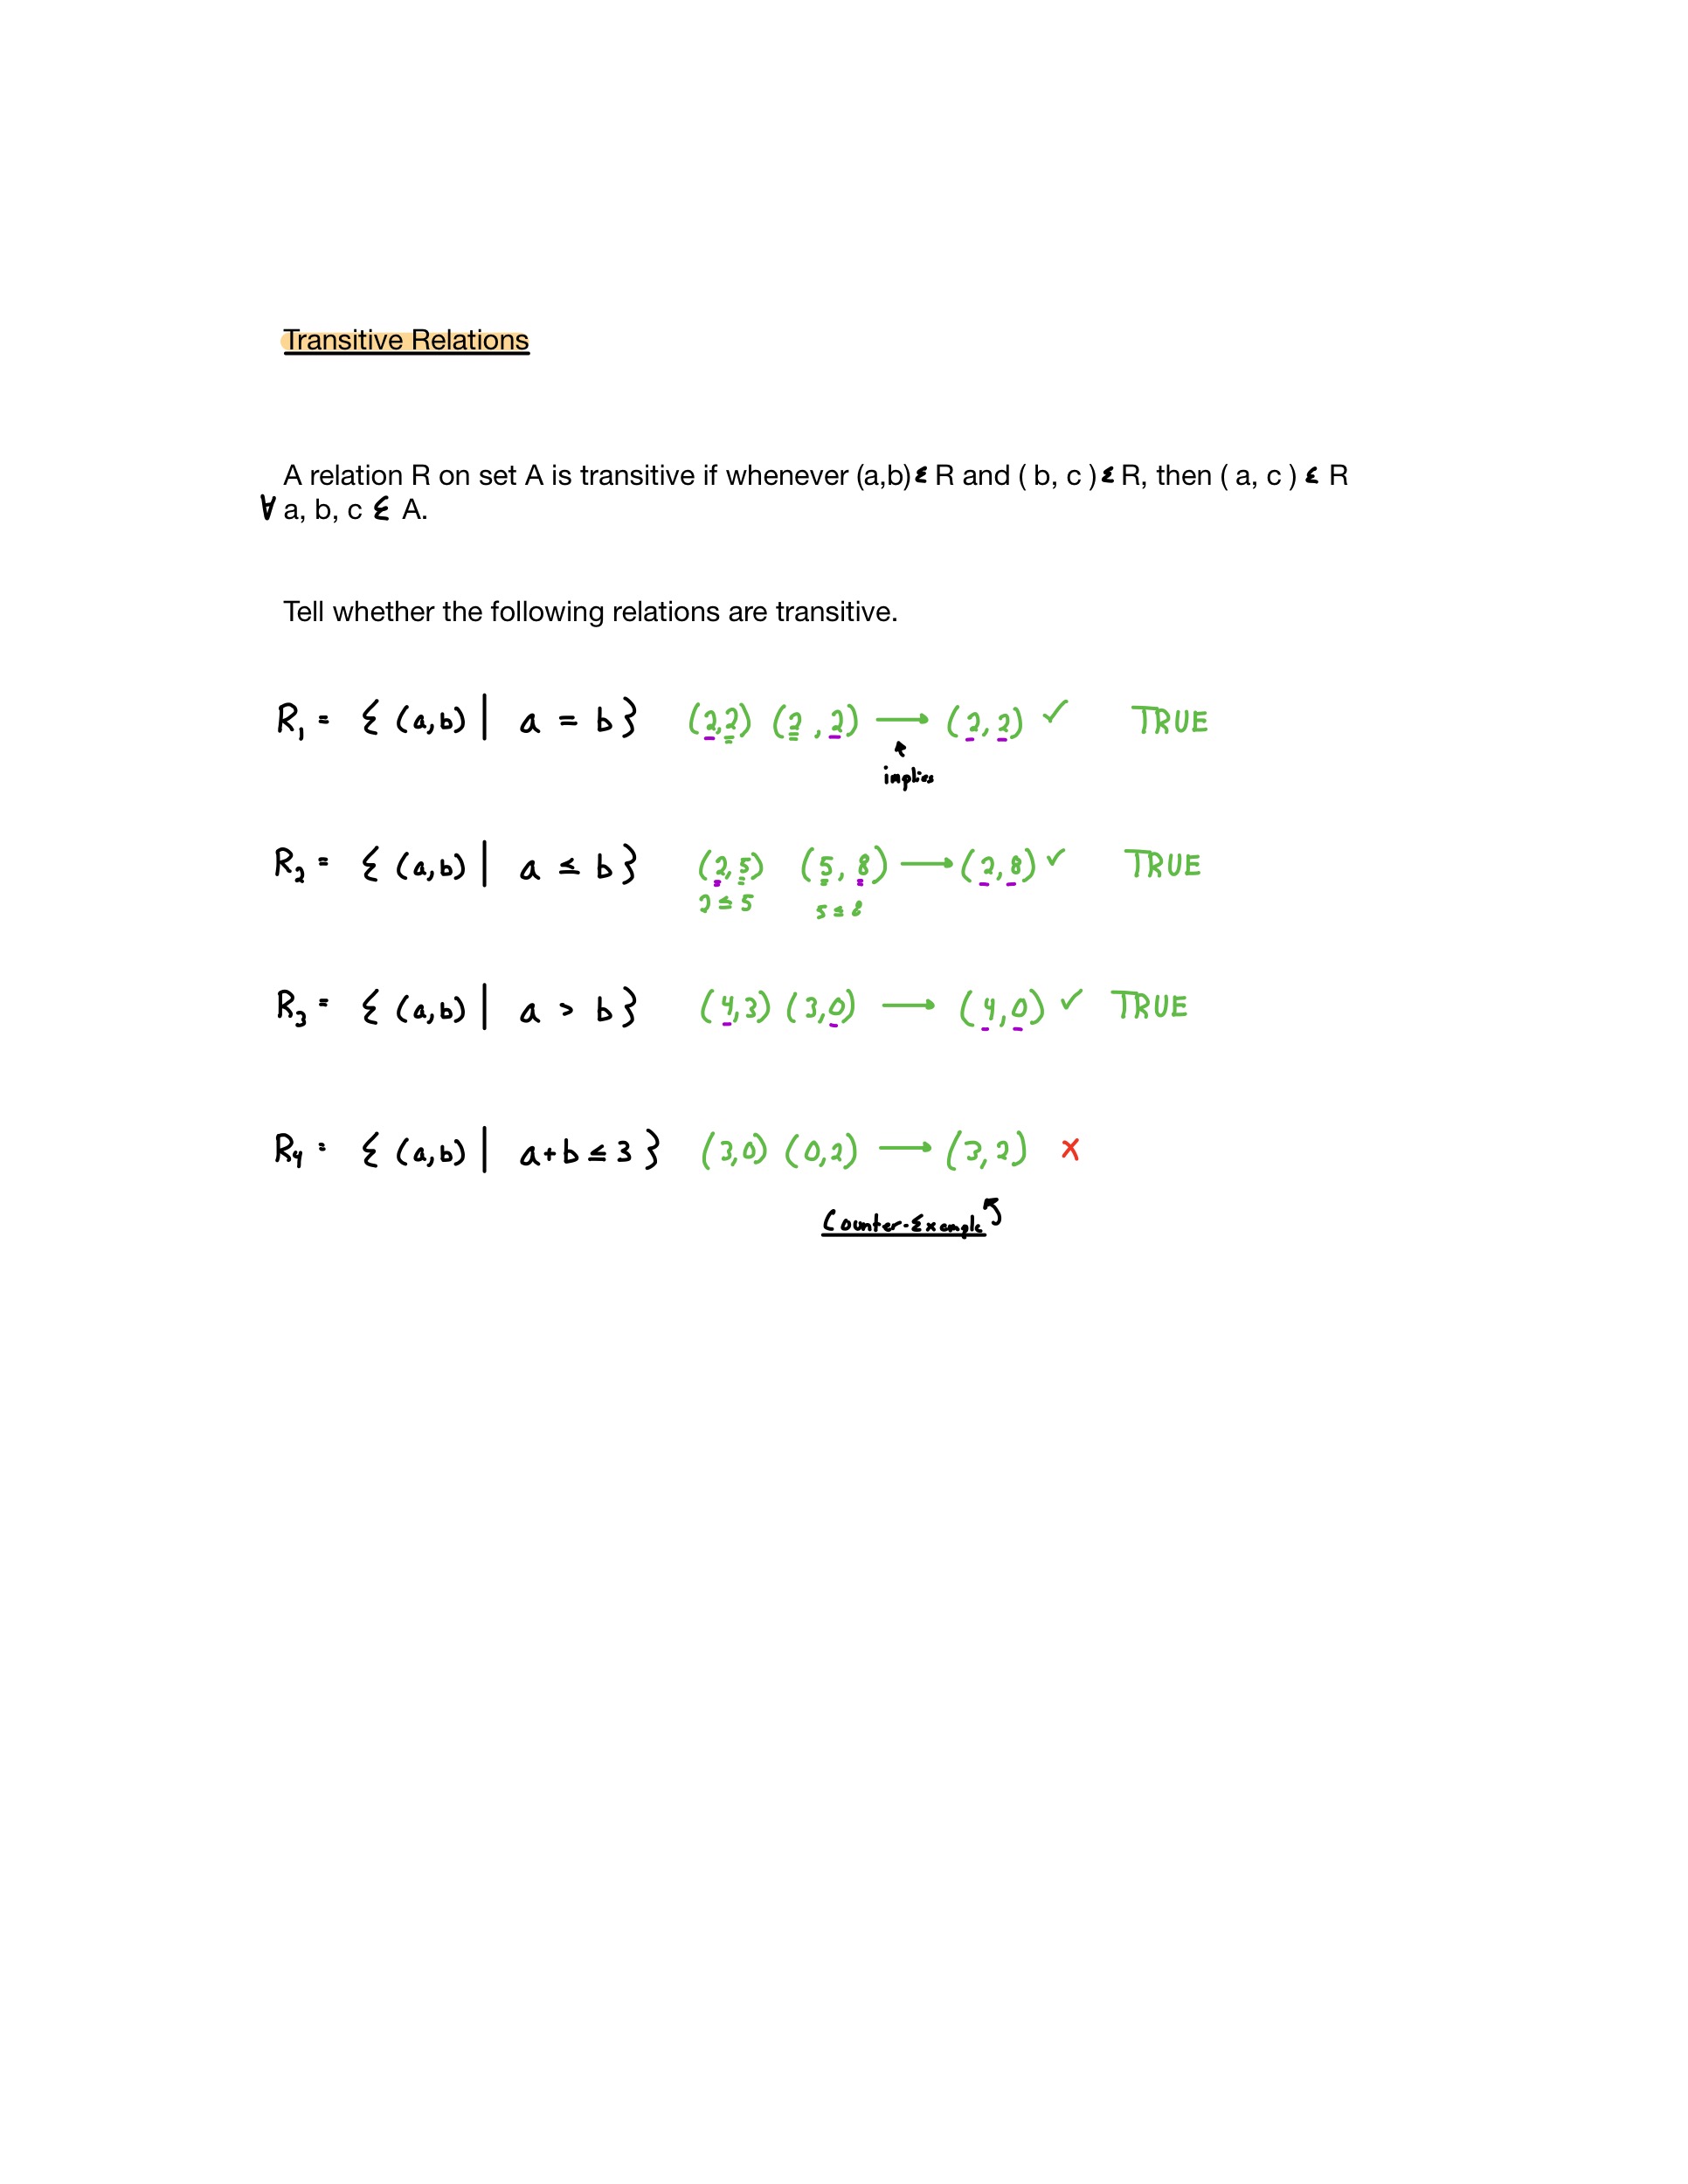 Transitive Relations
A relation R on set A is transitive if whenever (a,b) ∈ R and ( b, c ) ∈ R, then ( a, c ) ∈ R
∀ a, b, c ∈ A.
Tell whether the following relations are transitive.
R₁ = { (a,b) | a = b} (2,2) (2,2) → (2,2) ✓ TRUE
implies
R₂ = { (a,b) | a ≤ b} (2,5) (5,8) → (2,8) ✓ TRUE
2 ≤ 5 5 ≤ 8
R₃ = { (a,b) | a > b} (4,3) (3,0) → (4,0) ✓ TRUE
R₄ = { (a,b) | a+b ≤ 3 } (3,0) (0,2) → (3,2) ✗
Counter-Example